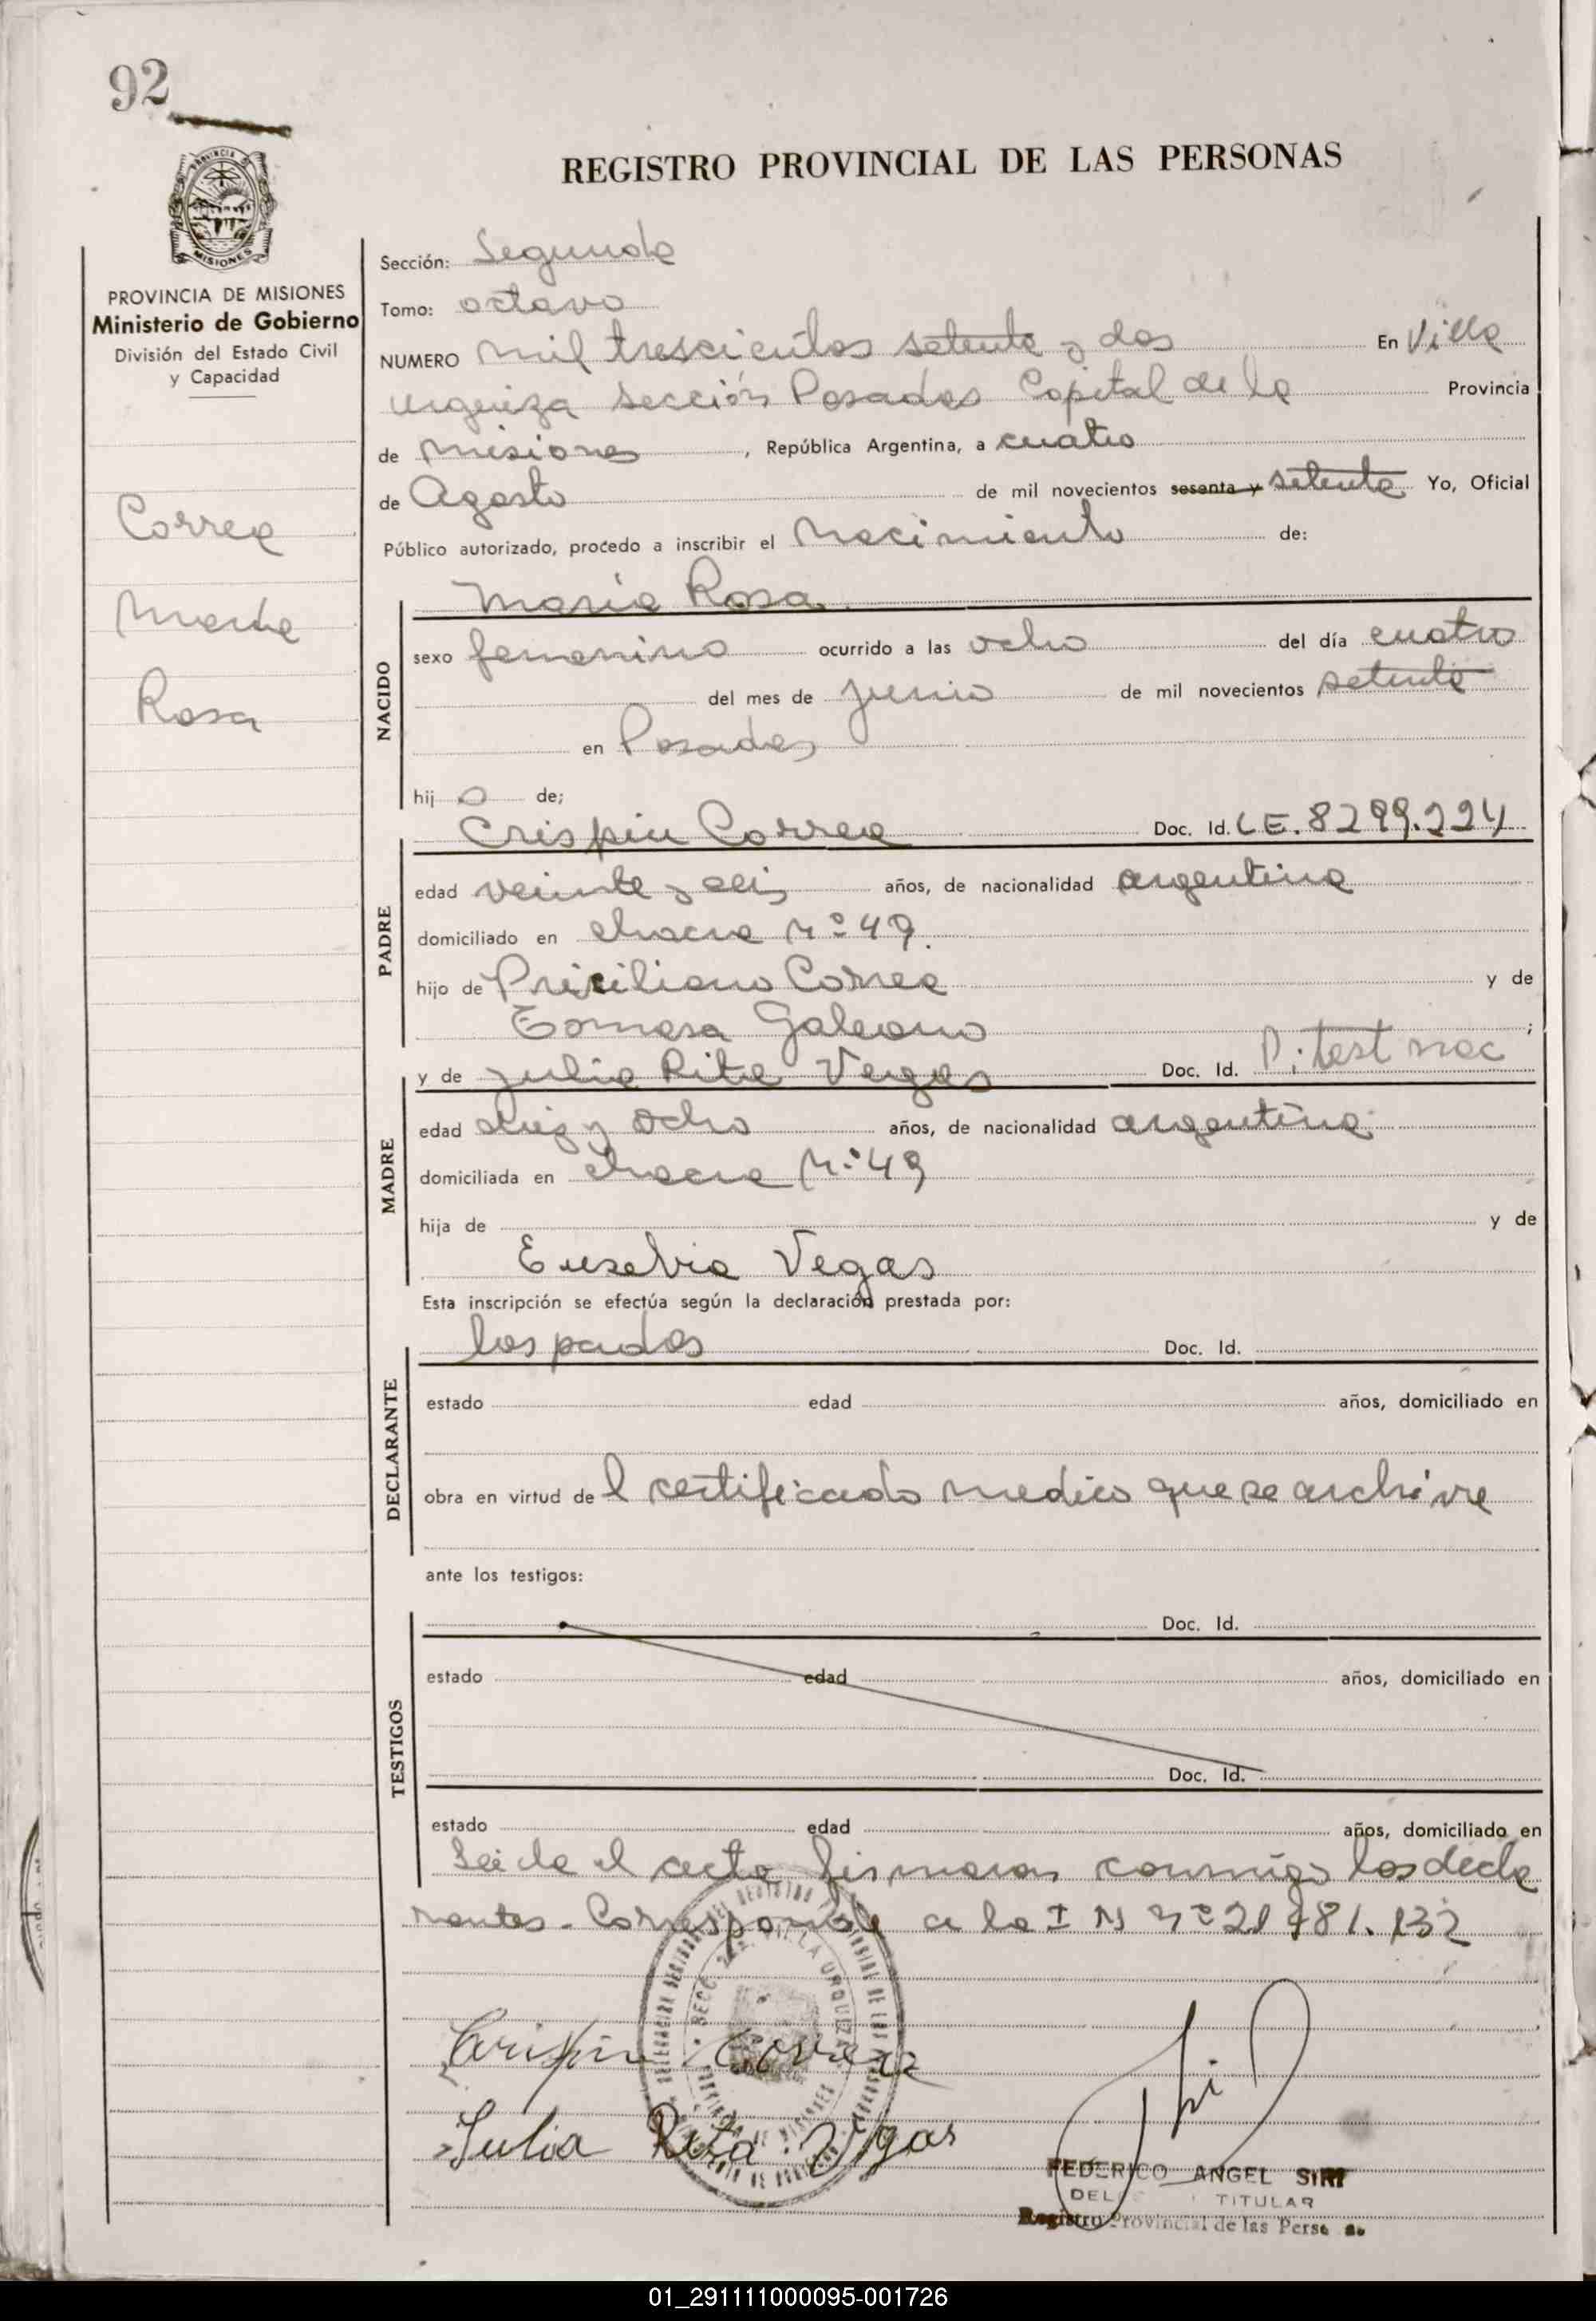 92
PROVINCIA DE MISIONES
Ministerio de Gobierno
División del Estado Civil
y Capacidad
Correa
Maria
Rosa
REGISTRO PROVINCIAL DE LAS PERSONAS
Sección: Segunda
Tomo: octavo
NUMERO mil trescientos setenta y dos En Villa
urquiza sección Posadas Capital de la Provincia
de misiones, República Argentina, a cuatro
de Agosto de mil novecientos sesenta y setenta Yo, Oficial
Público autorizado, procedo a inscribir el nacimiento de:
NACIDO
maria Rosa
sexo femenino ocurrido a las ocho del día cuatro
del mes de junio de mil novecientos setenta
en Posadas
hij a de;
PADRE
Crispin Correa Doc. Id. LE. 8299.224
edad veinte y seis años, de nacionalidad argentina
domiciliado en chacra nº 49.
hijo de Prisiliano Correa y de
Tomasa Galeano;
MADRE
y de julia Rita Vegas Doc. Id. P. test nac
edad diez y ocho años, de nacionalidad argentina
domiciliada en chacra Nº 49
hija de y de
Eusebia Vegas
Esta inscripción se efectúa según la declaración prestada por:
DECLARANTE
los padres Doc. Id.
estado edad años, domiciliado en
obra en virtud de l certificado medico que se archiva
ante los testigos:
TESTIGOS
Doc. Id.
estado edad años, domiciliado en
Doc. Id.
estado edad años, domiciliado en
Leida el acta firmaron conmigo los decla
rantes. Corresponde a la I N nº 21 781.132
Crispin Correa
Julia Rita Vegas
FEDERICO ANGEL SIRI
DEL TITULAR
Registro Provincial de las Perso as
01_291111000095-001726